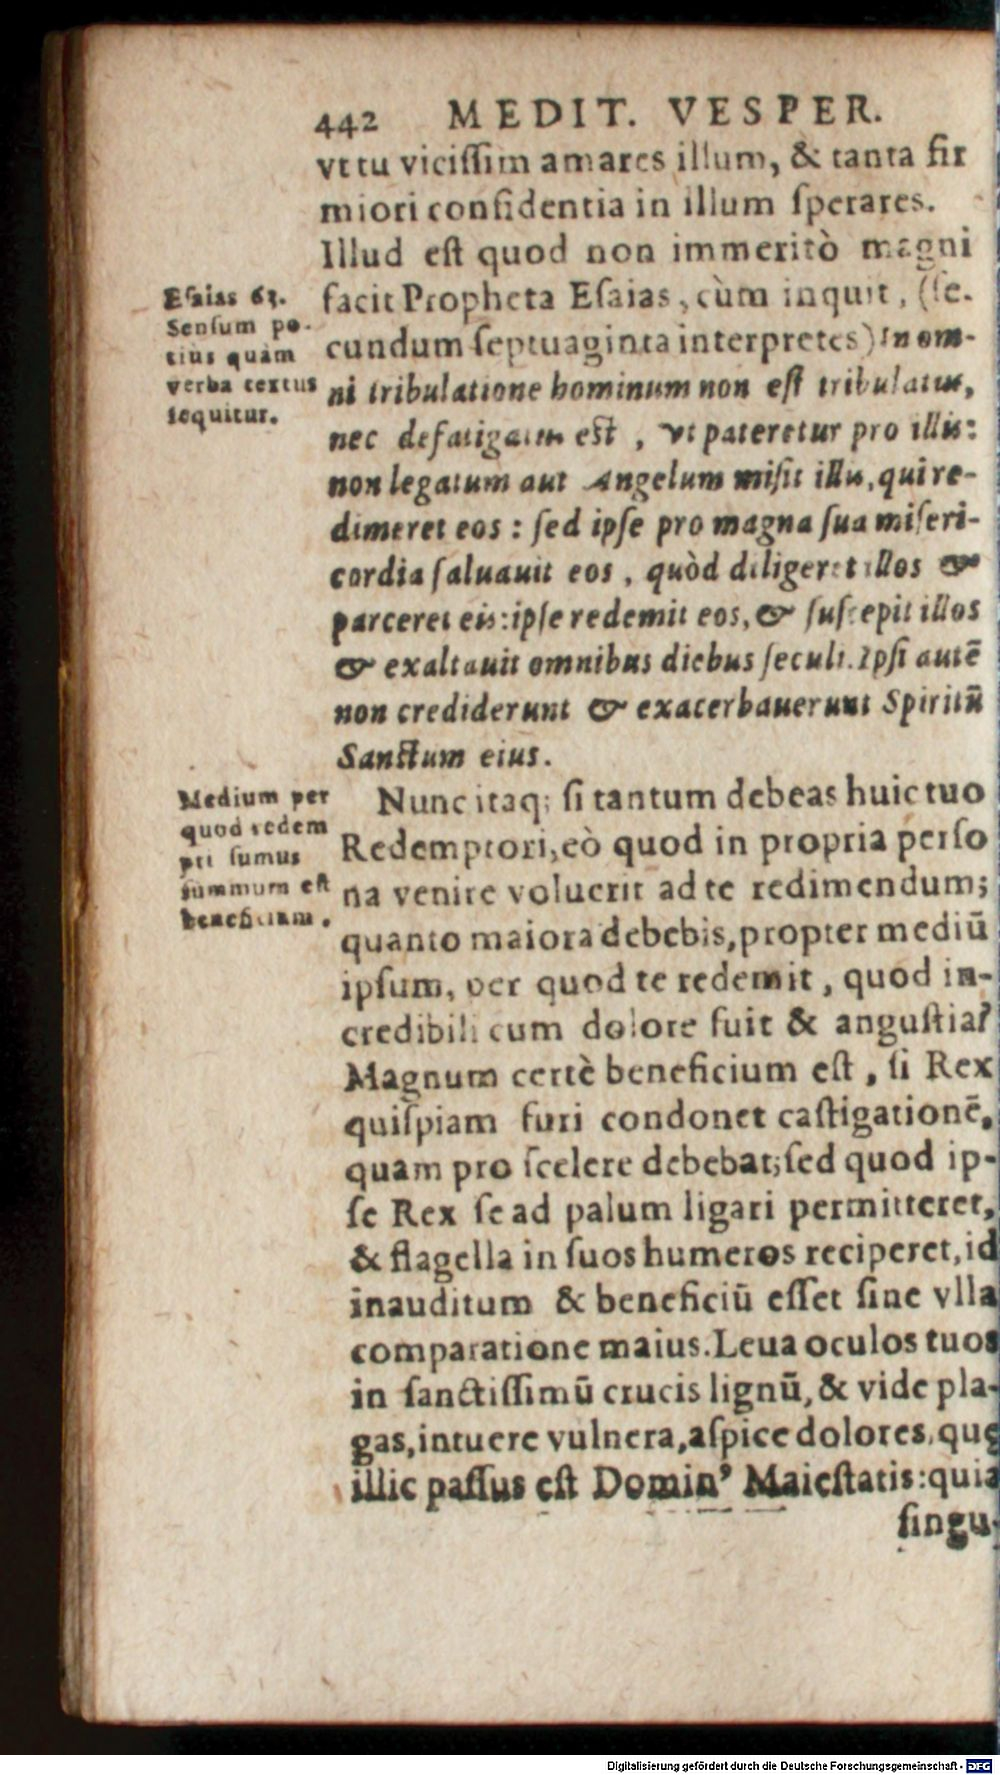 442 MEDIT. VESPER.
vt tu viciſſim amares illum, & tanta fir
miori confidentia in illum ſperares.
Illud eſt quod non immeritò magni
facit Propheta Eſaias, cùm inquit, (ſe-
cundum ſeptuaginta interpretes) In om-
ni tribulatione hominum non eſt tribulatus,
nec defatigatus est, vt pateretur pro illis:
non legatum aut Angelum miſit illis, qui re-
dimeret eos: ſed ipſe pro magna ſua miſeri-
cordia ſaluauit eos, quòd diligeret illos &
parceret eis: ipſe redemit eos, & ſuſcepit illos
& exaltauit omnibus diebus ſeculi. Ipſi autē
non crediderunt & exacerbauerunt Spiritū
Sanctum eius.
Eſaias 63.
Senſum po-
tius quàm
verba textus
ſequitur.
Nunc itaq; ſi tantum debeas huic tuo
Redemptori, eò quod in propria perſo
na venire voluerit ad te redimendum;
quanto maiora debebis, propter mediū
ipſum, per quod te redemit, quod in-
credibili cum dolore fuit & anguſtia?
Magnum certè beneficium eſt, ſi Rex
quiſpiam furi condonet caſtigationē,
quam pro ſcelere debebat; ſed quod ip-
ſe Rex ſe ad palum ligari permitteret,
& flagella in ſuos humeros reciperet, id
inauditum & beneficiū eſſet ſine vlla
comparatione maius. Leua oculos tuos
in ſanctiſſimū crucis lignū, & vide pla-
gas, intuere vulnera, aſpice dolores, quę
illic paſſus eſt Dominꝰ Maieſtatis: quia
ſingu-
Medium per
quod redem
pti ſumus
ſummum eſt
beneficium.
Digitalisierung gefördert durch die Deutsche Forschungsgemeinschaft - DFG